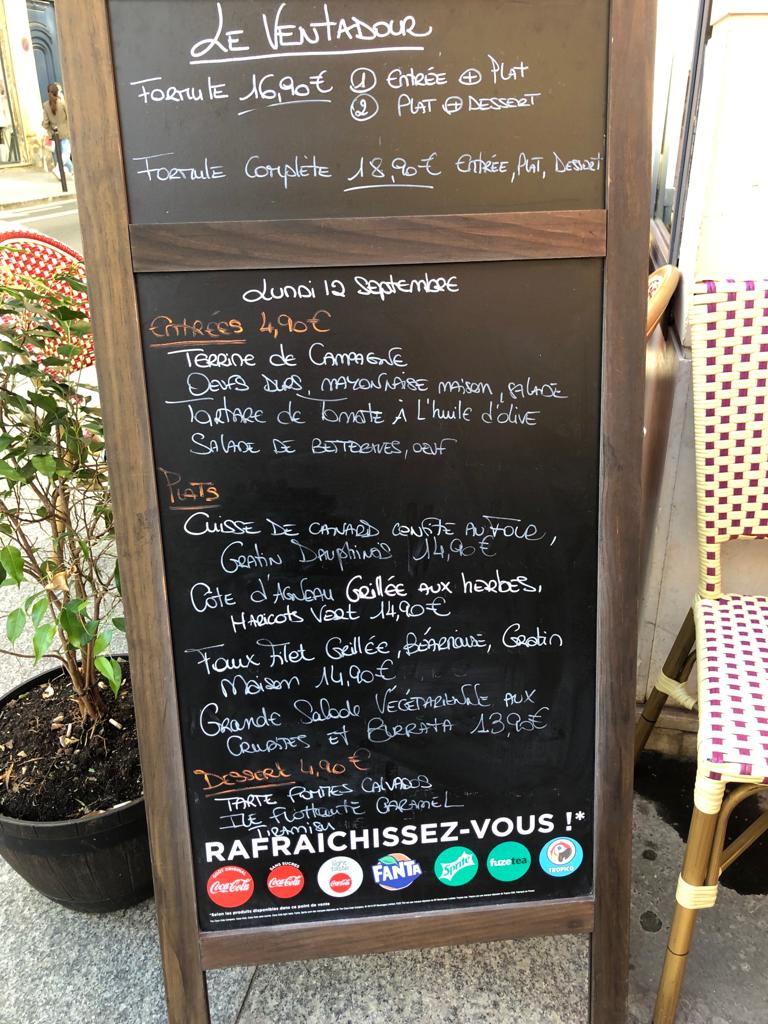 Le Ventadour
Formule 16,90€ ① Entrée + Plat
② Plat + Dessert
Formule Complète 18,90€ Entrée, Plat, Dessert
Lundi 12 Septembre
Entrées 4,90€
Terrine de Campagne
Oeufs durs, mayonnaise maison, salade
Tartare de Tomate à L'huile d'olive
Salade de Betteraves, oeuf
Plats
Cuisse de canard confite au four,
Gratin Dauphinois 14,90€
Côte d'Agneau Grillée aux herbes,
Haricots Vert 14,90€
Faux Filet Grillée, Béarnaise, Gratin
Maison 14,90€
Grande Salade Végétarienne aux
Crudites et Burrata 13,90€
Dessert 4,90€
Tarte Pommes Calvados
Ile flottante Caramel
Tiramisu
RAFRAICHISSEZ-VOUS !*
GOÛT ORIGINAL Coca-Cola SANS SUCRES Coca-Cola light taste Coca-Cola FANTA Sprite fuzetea TROPICO
*Selon les produits disponibles dans ce point de vente